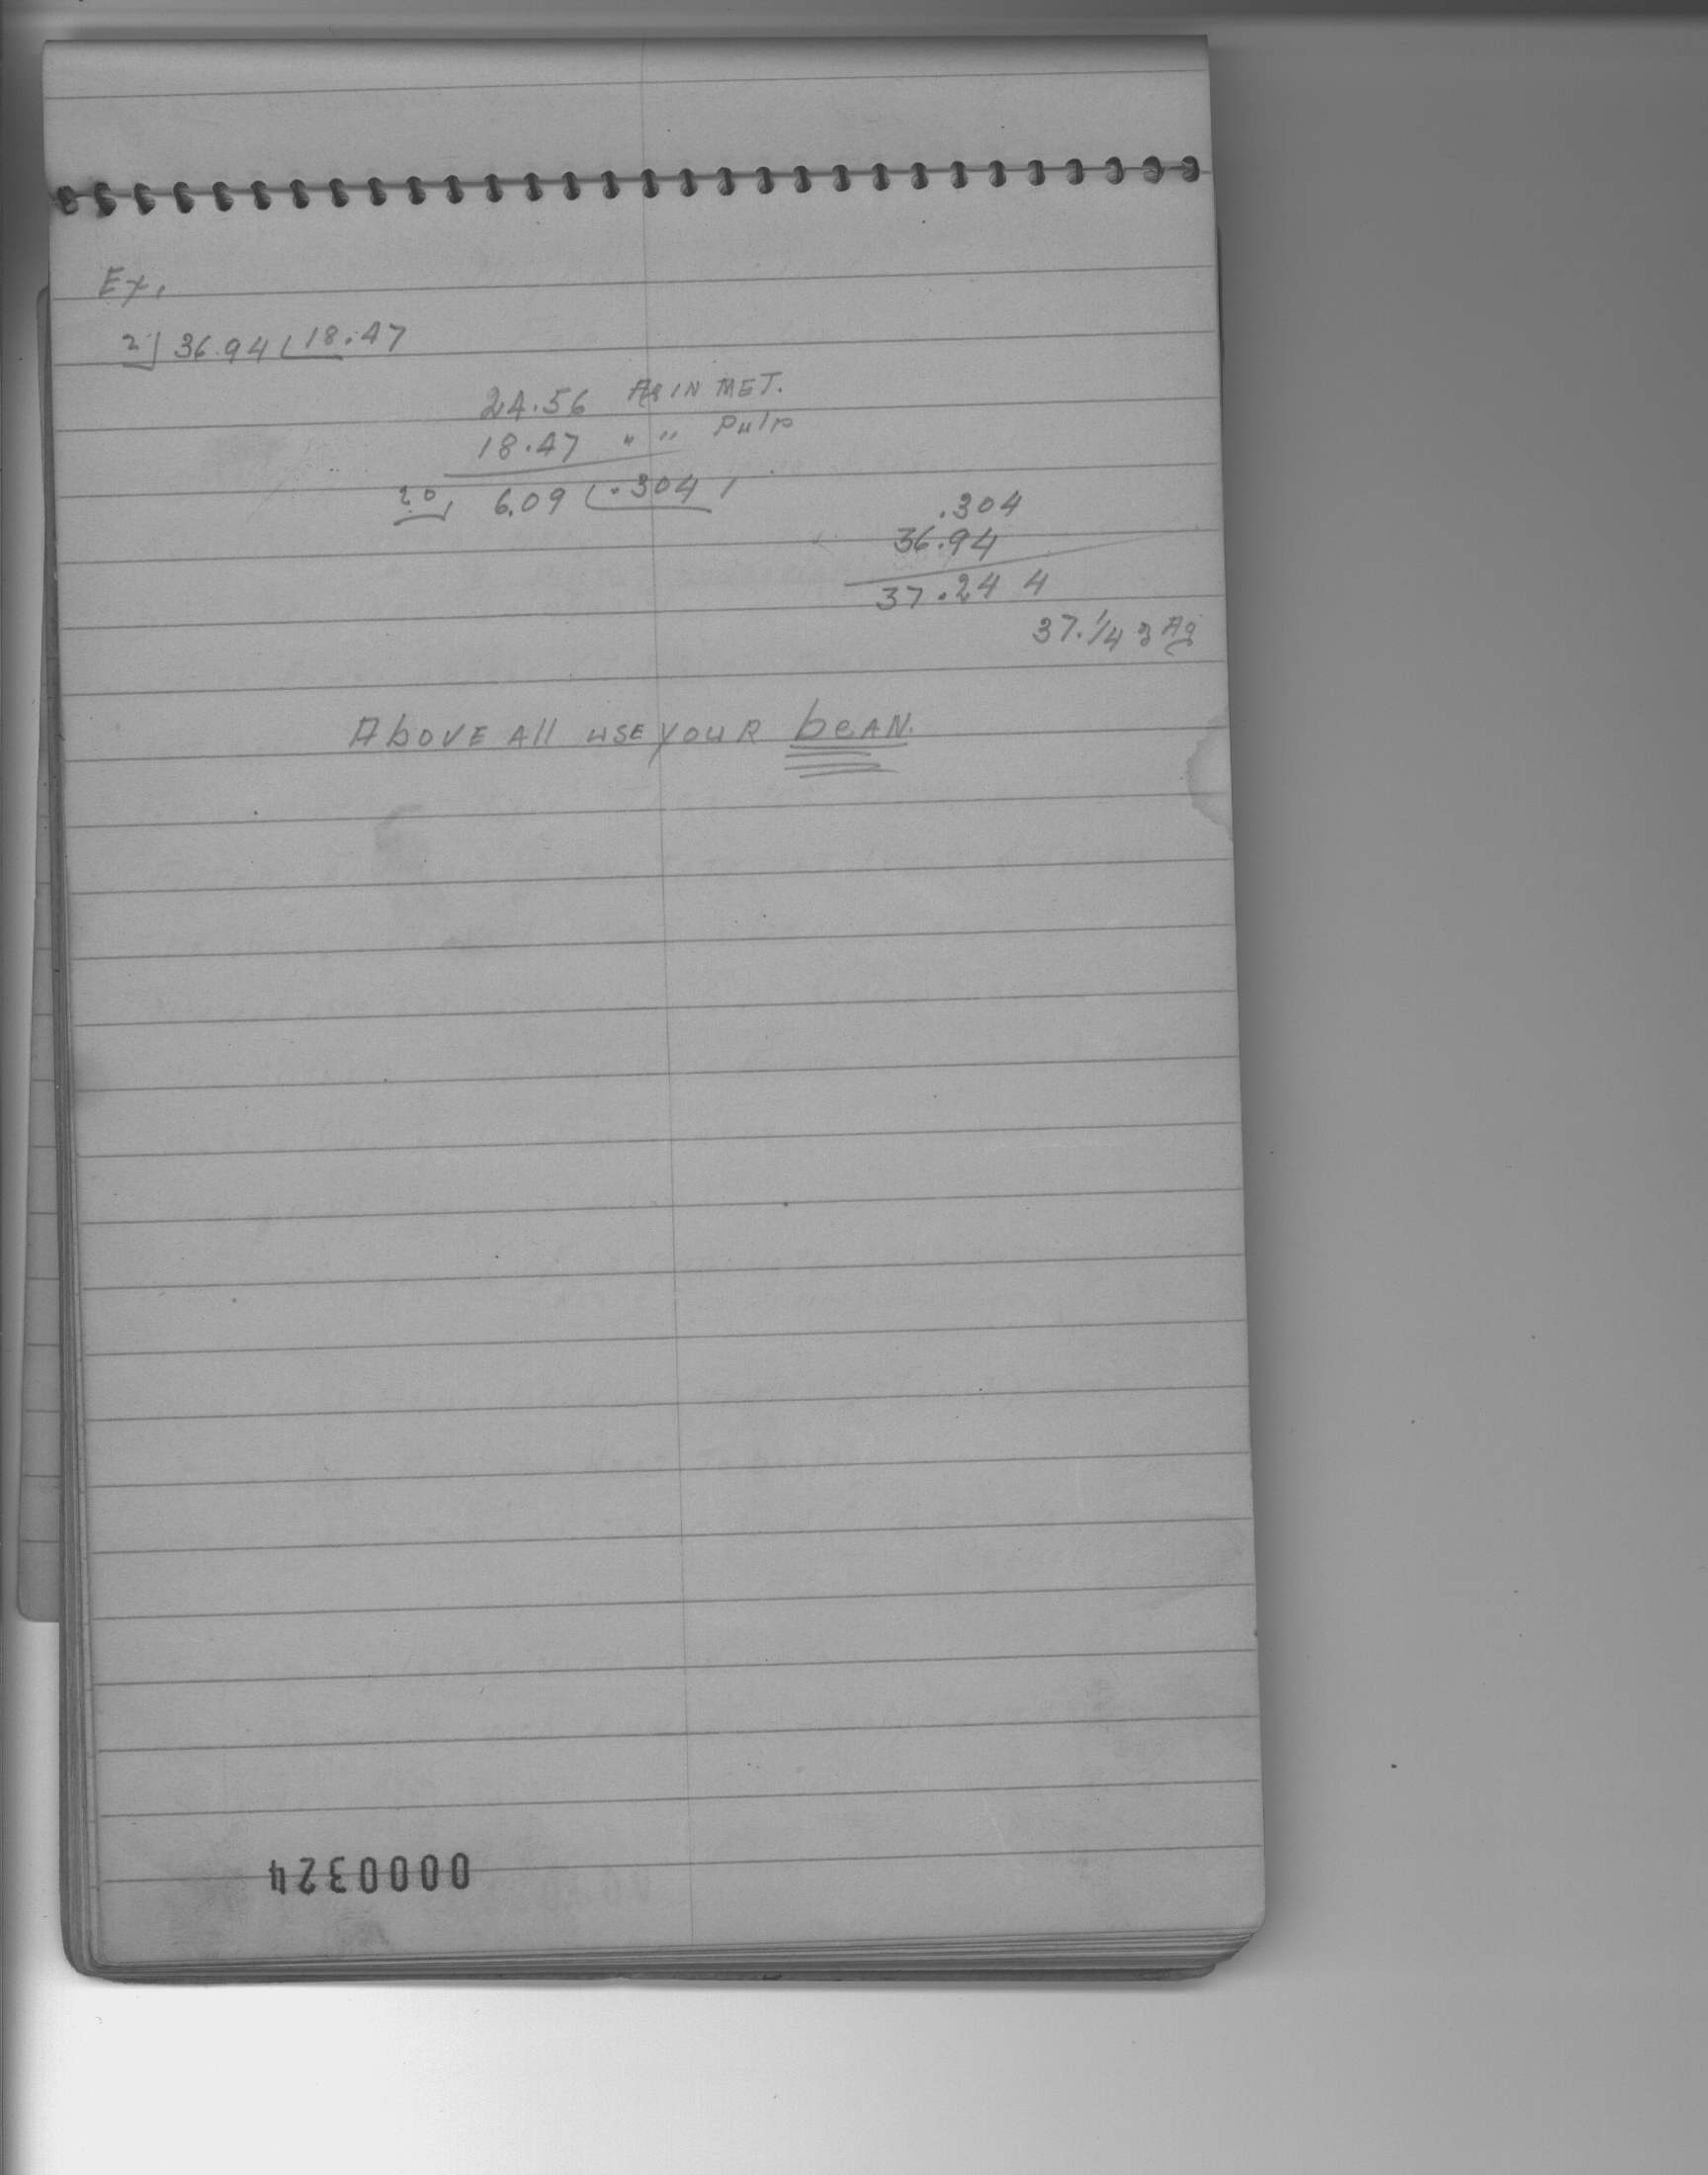 Ex.
2) 36.94 ( 18.47
24.56 Ag IN MET.
18.47 " " Pulp
20) 6.09 ( .304
.304
36.94
37.24 4
37.1/4 ℥ Ag
Above All use your beAN.
0000324